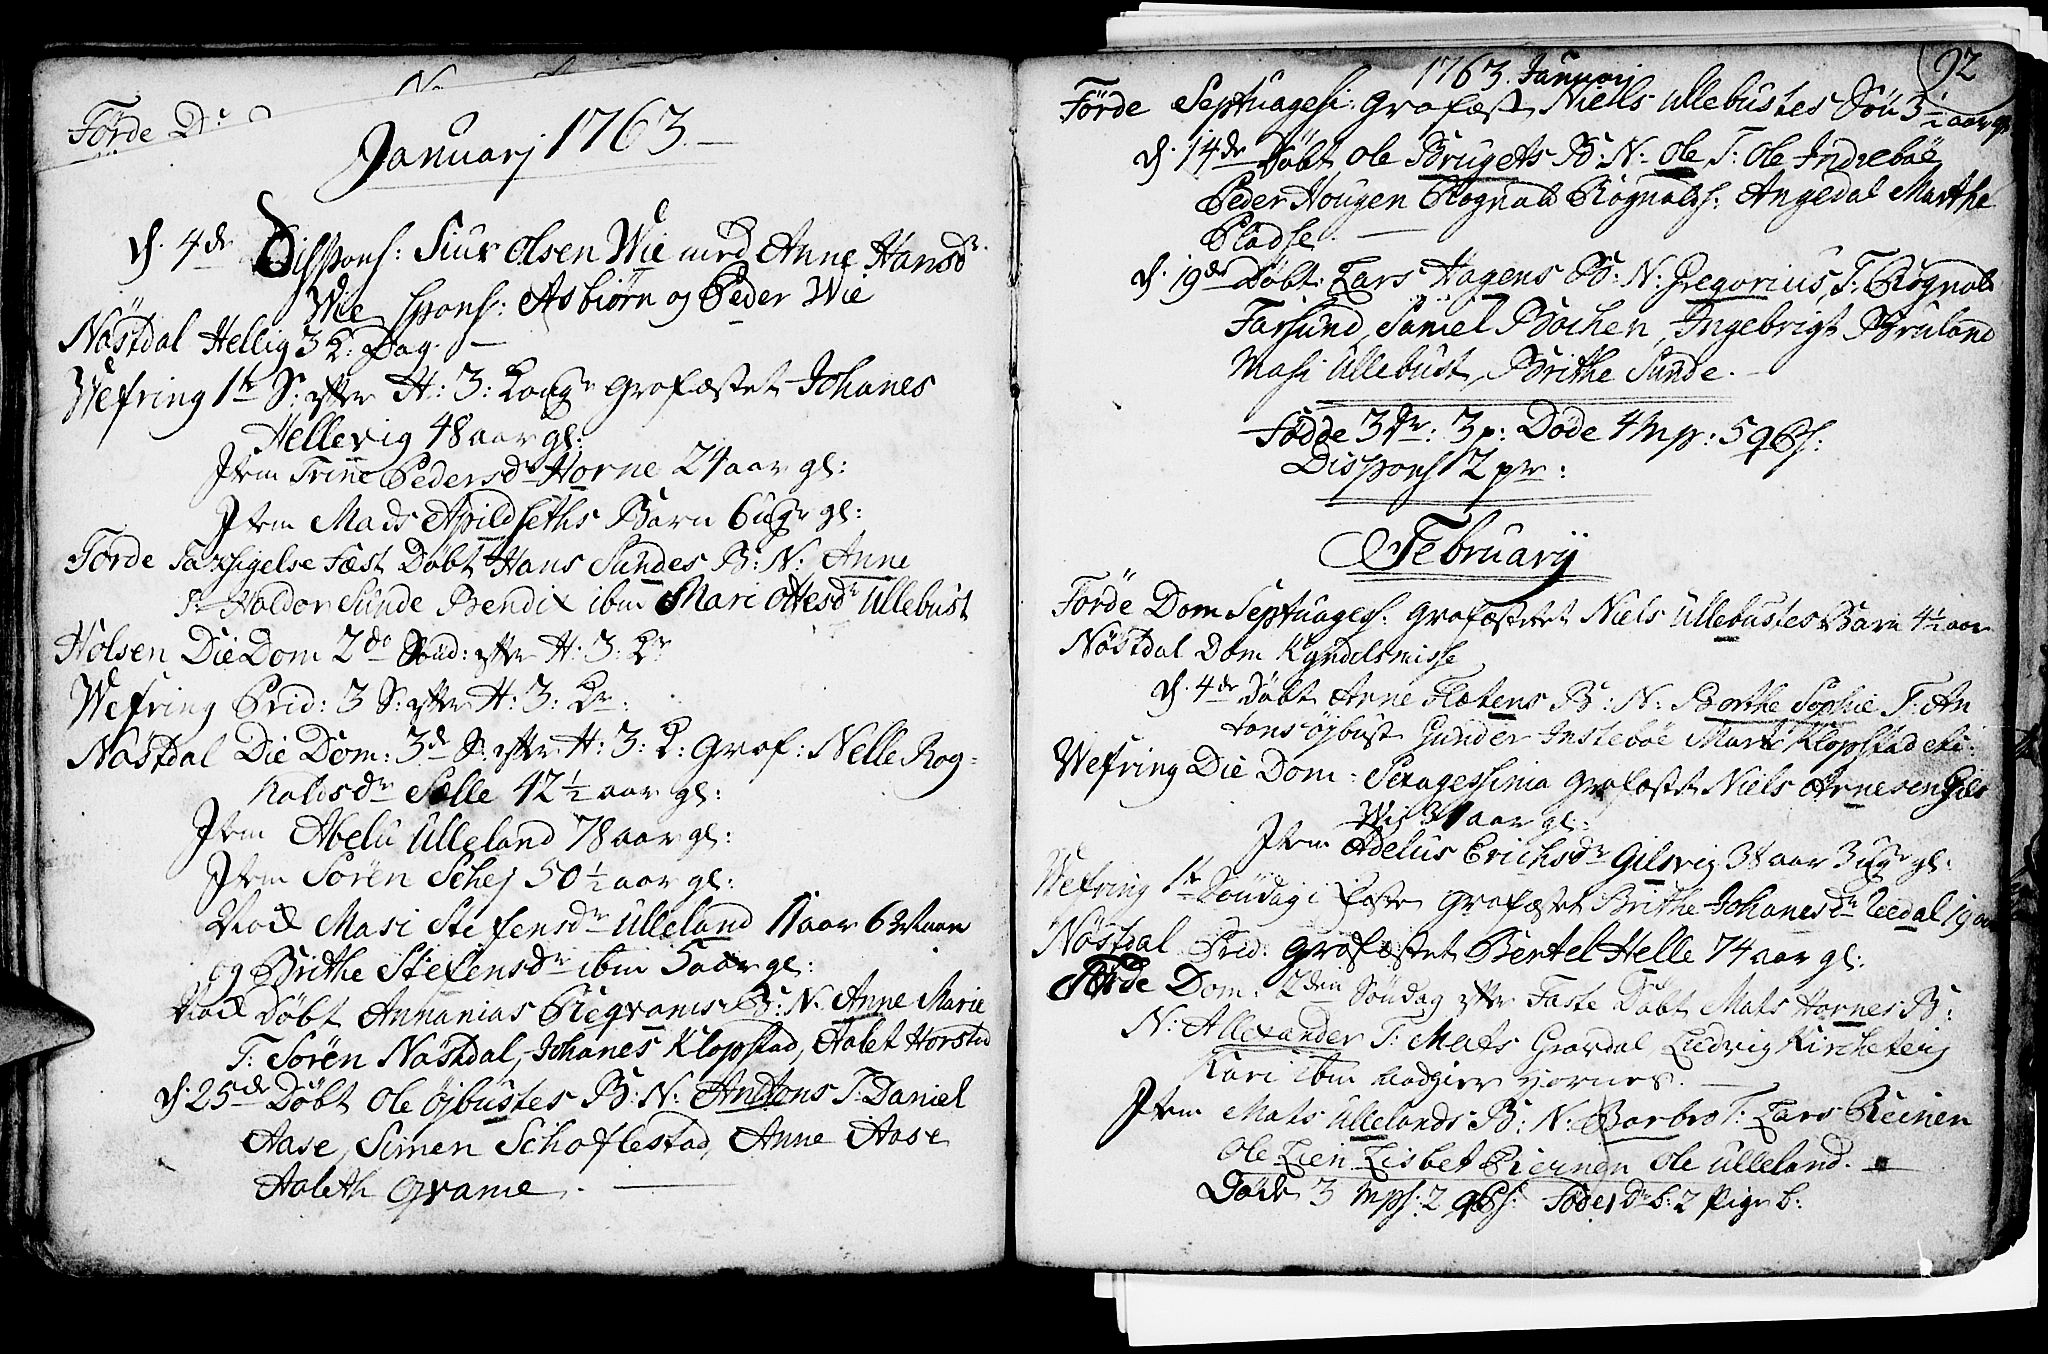 Förde Dr
Januarj 1763.
d. 4de Dispons: Siur Olsen Wie med Anne Hansdr
Wie spons: Asbiørn og Peder Wie
Nøstdal Hellig 3 K: Dag.
Wefring 1te S: efter H: 3: Kong: grafæstet Johanes
Hellevig 48 aar gl:
Item Trine Pedersdr Horne 24 aar gl:
Item Mads Apildseths Barn 6 uger gl:
Förde Taxsigelse Fæst Døbt Hans Sundes B: N: Anne
T: Haldor Sunde Bendix ibm Mari Ottesdr Ullebust
Holsen Die Dom 2do Sönd: efter H: 3: Kr
Wefring Prid: 3 S: efter H: 3: Kr:
Nøstdal Die Dom: 3de S: efter H: 3: K: Graf: Nelle Rog-
naldsdr Sælle 42 1/2 aar gl:
Item Abelu Ulleland 78 aar gl:
Item Sören Schej 50 1/2 aar gl:
Masi Stefensdr Ulleland 11 aar 6
og Brithe Stefensdr ibm 5 aar gl:
Døbt Annanias B: N: Anne Marie
T: Sören Nøstdal, Johanes Klopstad, Aalet Horstad
d. 25de Døbt Ole Öjbustes B: N: Andtons T: Daniel
Aase, Simen Schoflestad, Anne Aase
Aaleth Qvame.
92
1763. Januarj
Förde Septuagesi: grafæst Niels Ullebustes Sön 3 1/2 aar gl
d. 14de Døbt Ole Brugets B: N: Ole T: Ole Indrebøe
Peder Hougen Rognald Rognalds: Angedal Marthe
Pladse.
d. 19de Döbt: Lars Hagens B: N: Gregorius, T: Rognald
Farsund, Samel Bochen, Ingebrigt Bruland
Masi Ullebust, Brithe Sunde.
Födde 3 dr: 3 p: Döde 4 Mp: 5 qPs:
Dispons 12 pr:
Februarij
Förde Dom Septuages: grafæstet Niels Ullebustes Barn 4 1/2 aar
Nöstdal Dom Kyndelsmisse
d. 4de Döbt Arne Flætens B: N: Borthe Sophie T: An
tons Öjbust Gunder Instebøe Marte Klopstad etc:
Wefring Die Dom: Sexagessinia grafæstet Niels Arnesen Gils
Wig 31 aar gl:
Item Adelus Erichsdr Gilsvig 34 aar 3 uger gl:
Wefring 1te Söndag i Faste grafæstet Brithe Johanesdr Leedal 19 aar
Nöstdal Prid: grafæstet Bentel Helle 74 aar gl:
Förde Dom: 2den Söndag efter Faste Döbt Mats Hornes B:
N: Allexander T: Mats Gravdal, Ludvig Kircheteig
Kari ibm
Item Mats Ullelands B: N: Barbro T: Lars Reinen
Ole Lien Lisbet Ole Ulleland.
Döde 3 Mps: 2 qPs: Föde 1 Dr b: 2 Pige b: